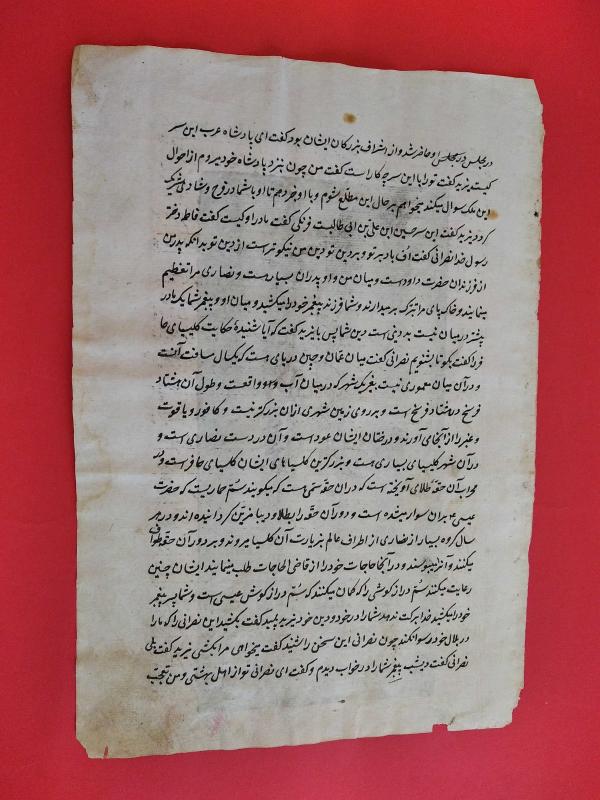 در مجلس او حاضر شد و از اشراف بزرکان ایشان بود گفت ای پادشاه عرب این سر
کیست یزید گفت تو را با این سر چه کار است گفت من چون بنزد پادشاه خود میروم از احوال
این ملک سوال میکند میخواهم بر حال این مطلع شوم و باو خبر دهم تا او با شما در فرح و شادی شریک
کردد یزید گفت این سر حسین ابن علی بن ابی طالبست فرنکی گفت مادر او کیست گفت فاطمه دختر
رسول خدا نصرانی گفت اُف باد بر تو و بر دین تو دین من نیکوتر است از دین تو بدانکه پدر من
از فرزندان حضرت داود است و میان من و او پدران بسیار است و نصاری مرا تعظیم
مینمایند و خاک پای مرا تبرک بر میدارند و شما فرزند پیغمبر خود را میکشید و میان او و پیغمبر شما یک مادر
بیشتر در میان نیست بد دینی است دین شما پس با یزید گفت که آیا شنیدهٔ حکایت کلیسای حا
فر را گفت بکو تا بشنویم نصرانی گفت میان عمان و چین دریای هست که یکسال مسافت آنست
و در آن میان معموری نیست بغیر یکشهر که در میان آب واقعست و طول آن هشتاد
فرسخ در هشتاد فرسخ است و بر روی زمین شهری از آن بزرکتر نیست و کافور و یاقوت
و عنبر را از آنجا می آورند و درختان ایشان عود است و آن در دست نصاری است و
در آن شهر کلیسیای بسیاری هست و بزرکترین کلیساهای ایشان کلیسای حافر است و در
محراب آن حقه طلای آویخته است که در آن حقه سمی هست که میکویند سُم حاریست که حضرت
عیسی ع بر آن سوار میشده است و دور آن حقه را بطلا و دیبا مزین کردانیده اند و در هر
سال کروه بسیار از نصاری از اطراف عالم بزیارت آن کلیسا میروند و بر دور آن حقه طواف
میکنند و آنرا میبوسند و در آنجا حاجات خود را از قاضی الحاجات طلب مینمایند ایشان چنین
رعایت میکنند سُم دراز کوشی را که کمان میکنند که سُم دراز کوش عیسی است و شما پسر پیغمبر
خود را میکشید خدا برکت ندهد شما را در خود و دین خود یزید پلید گفت بکشید این نصرانی را که ما را
در بلاد خود رسوا نکند چون نصرانی این سخن را شنید گفت میخواهی مرا بکشی یزید گفت بلی
نصرانی گفت دیشب پیغمبر شما را در خواب دیدم و گفت ای نصرانی تو از اهل بهشتی و من تعجب